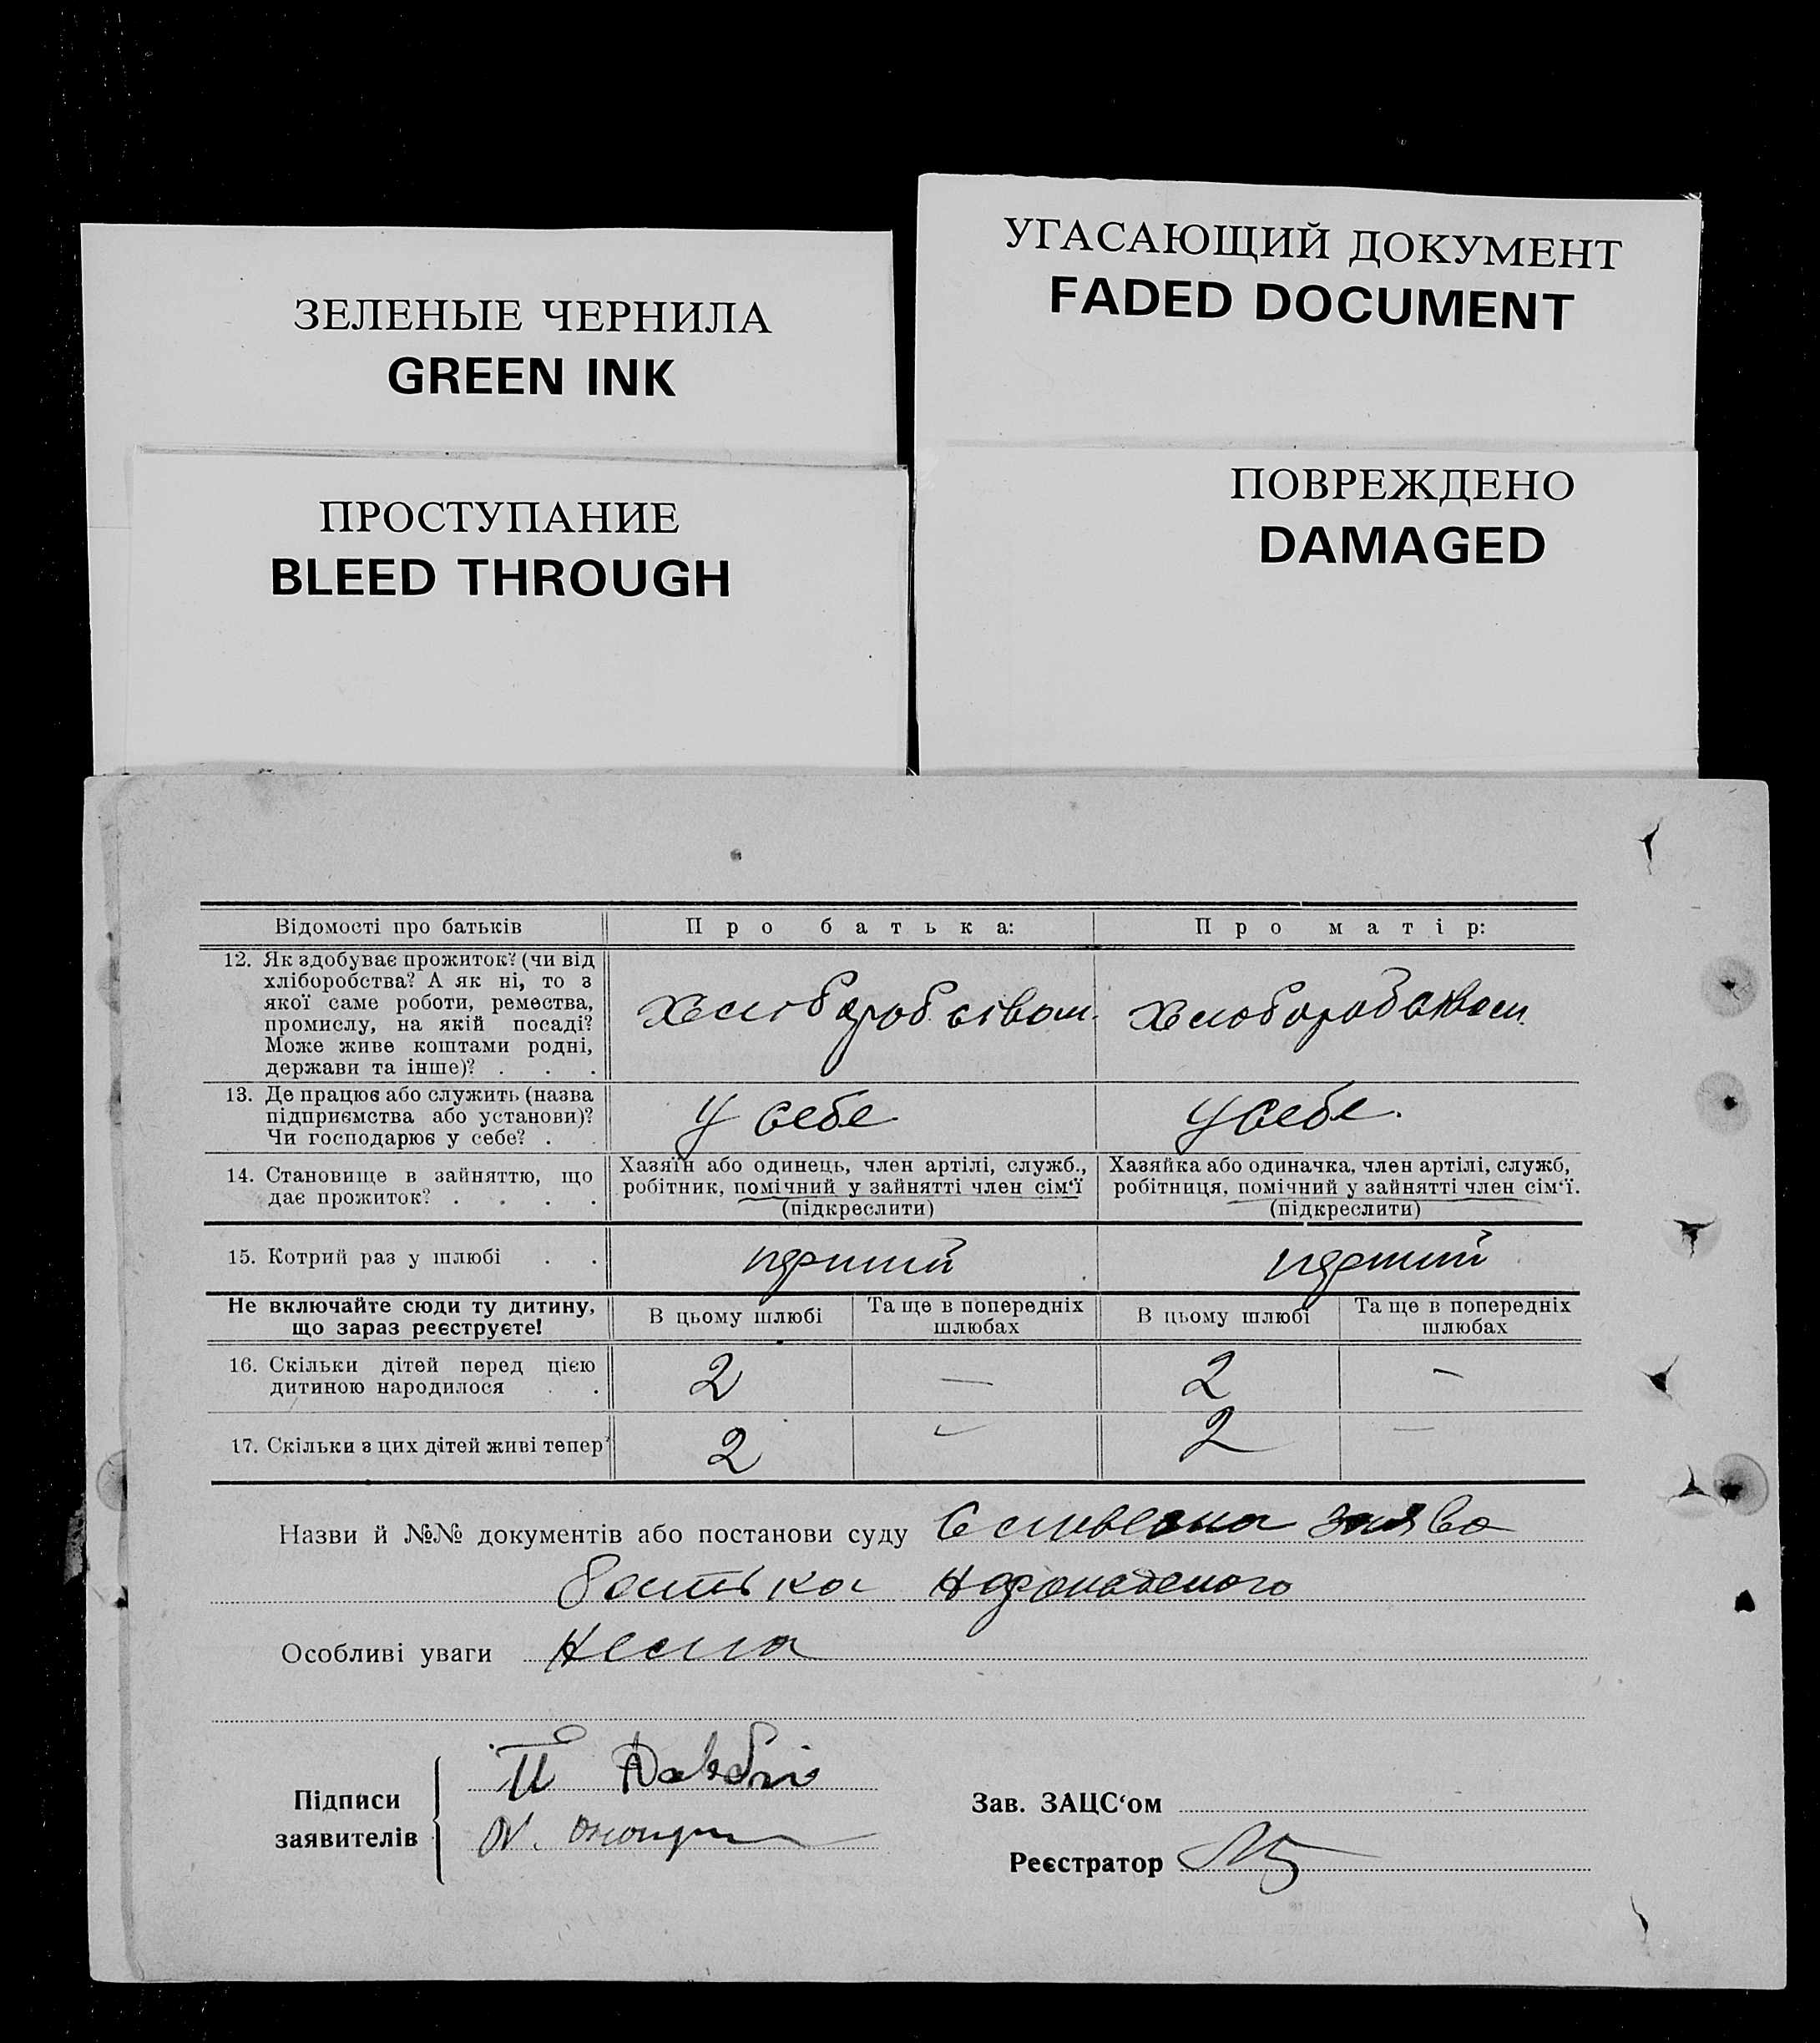 ЗЕЛЕНЫЕ ЧЕРНИЛА
GREEN INK
УГАСАЮЩИЙ ДОКУМЕНТ
FADED DOCUMENT
ПРОСТУПАНИЕ
BLEED THROUGH
ПОВРЕЖДЕНО
DAMAGED
Відомості про батьків
Про батька:
Про матір:
12. Як здобуває прожиток? (чи від
хліборобства? А як ні, то з
якої саме роботи, ремества,
промислу, на якій посаді?
Може живе коштами родні,
держави та інше)? . . .
хліборобством.
хліборобством
13. Де працює або служить (назва
підприємства або установи)?
Чи господарює у себе? . .
у себе
у себе.
14. Становище в зайняттю, що
дає прожиток? . . . .
Хазяїн або одинець, член артілі, служб.,
робітник, помічний у зайнятті член сім‘ї
(підкреслити)
Хазяйка або одиначка, член артілі, служб,
робітниця, помічний у зайнятті член сім‘ї.
(підкреслити)
15. Котрий раз у шлюбі . .
перший
перший
Не включайте сюди ту дитину,
що зараз реєструєте!
В цьому шлюбі
Та ще в попередніх
шлюбах
В цьому шлюбі
Та ще в попередніх
шлюбах
16. Скільки дітей перед цією
дитиною народилося . .
2
—
2
—
17. Скільки з цих дітей живі тепер?
2
—
2
—
Назви й №№ документів або постанови суду словесна заява
батька
Особливі уваги нема
Підписи
заявителів
Зав. ЗАЦС‘ом
Реєстратор